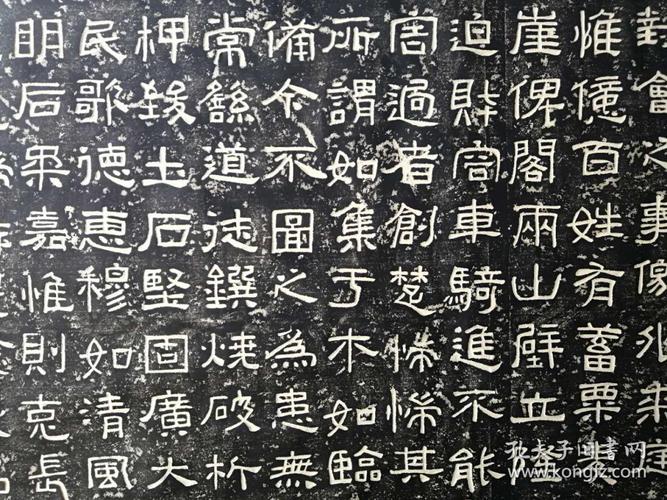 對會之事徼外來庭
惟億百姓有蓄粟
崖俾閣兩山壁立隆
迫財容車騎進不能
害過者創楚惴惴其
所謂如集于木如臨
備今不圖之為患無
常繇道徒鐉燒破析
柙致土石堅固廣大
民歌德惠穆如清風
明后柔嘉惟則克長
孔夫子旧书网
www.kongfz.com